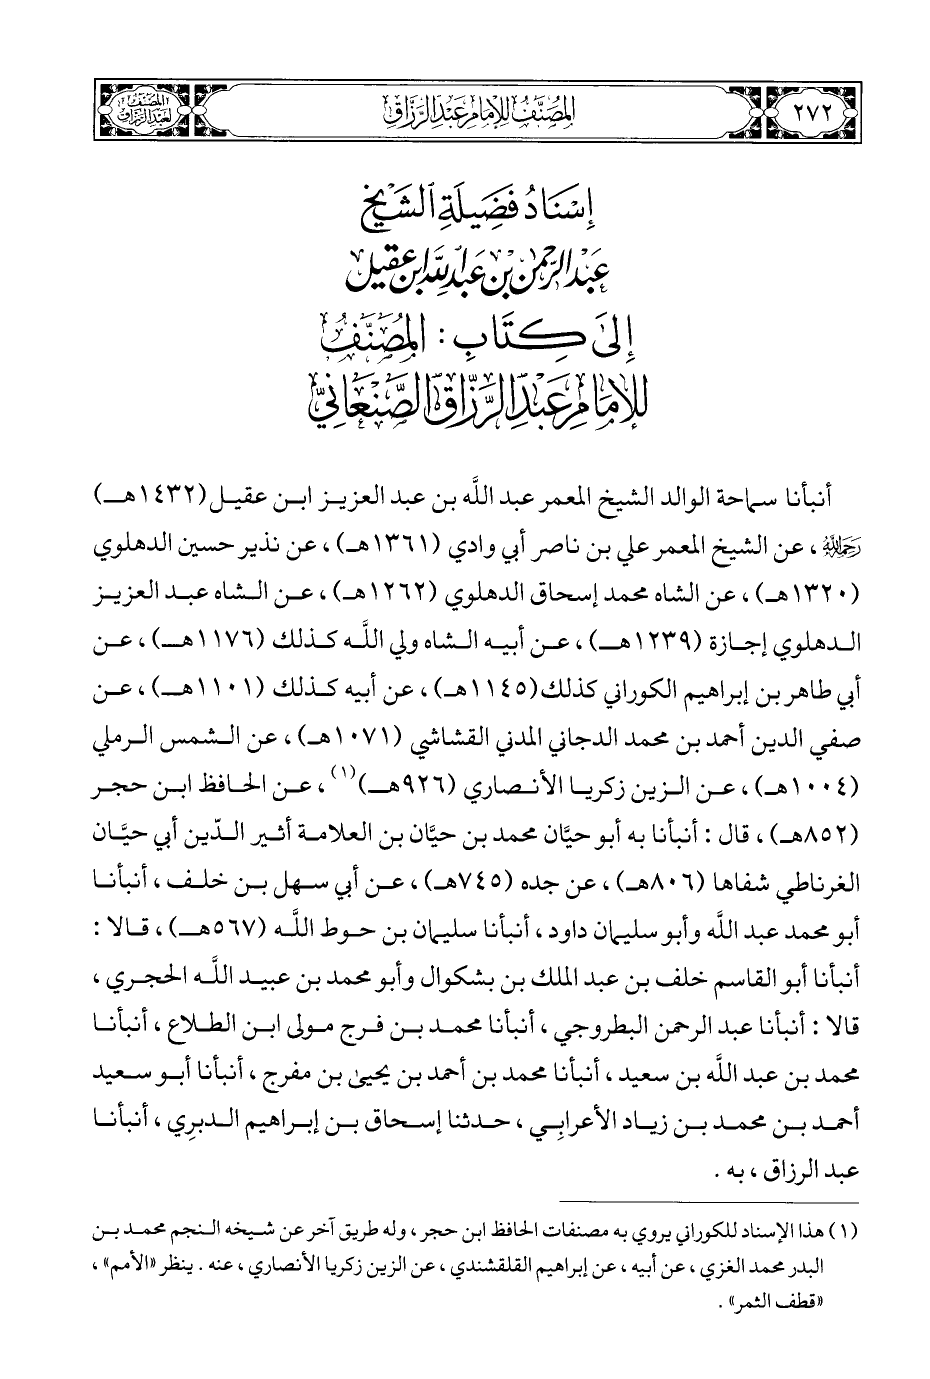 ٢٧٢
المصنف للإمام عبد الرزاق
المصنف
لعبد الرزاق
إِسْنَادُ فَضِيلَةِ الشَّيْخِ
عَبْد الرَّحْمٰن بْن عَبْد اللَّه ابن عَقِيل
إِلَىٰ كِتَابِ : المُصَنَّفُ
لِلإِمَامِ عَبْدِ الرَّزَّاقِ الصَّنْعَانِيِّ
أنبأنا سماحة الوالد الشيخ المعمر عبد اللَّه بن عبد العزيز ابن عقيل (١٤٣٢هـ)
رَحِمَهُ اللَّهُ ، عن الشيخ المعمر علي بن ناصر أبي وادي (١٣٦١هـ) ، عن نذير حسين الدهلوي
(١٣٢٠هـ) ، عن الشاه محمد إسحاق الدهلوي (١٢٦٢هـ) ، عن الشاه عبد العزيز
الدهلوي إجازة (١٢٣٩هـ) ، عن أبيه الشاه ولي اللَّه كذلك (١١٧٦هـ) ، عن
أبي طاهر بن إبراهيم الكوراني كذلك (١١٤٥هـ) ، عن أبيه كذلك (١١٠١هـ) ، عن
صفي الدين أحمد بن محمد الدجاني المدني القشاشي (١٠٧١هـ) ، عن الشمس الرملي
(١٠٠٤هـ) ، عن الزين زكريا الأنصاري (٩٢٦هـ)(١) ، عن الحافظ ابن حجر
(٨٥٢هـ) ، قال : أنبأنا به أبو حيَّان محمد بن حيَّان بن العلامة أثير الدّين أبي حيَّان
الغرناطي شفاها (٨٠٦هـ) ، عن جده (٧٤٥هـ) ، عن أبي سهل بن خلف ، أنبأنا
أبو محمد عبد اللَّه وأبو سليمان داود ، أنبأنا سليمان بن حوط اللَّه (٥٦٧هـ) ، قالا :
أنبأنا أبو القاسم خلف بن عبد الملك بن بشكوال وأبو محمد بن عبيد اللَّه الحجري ،
قالا : أنبأنا عبد الرحمن البطروجي ، أنبأنا محمد بن فرج مولى ابن الطلاع ، أنبأنا
محمد بن عبد اللَّه بن سعيد ، أنبأنا محمد بن أحمد بن يحيى بن مفرج ، أنبأنا أبو سعيد
أحمد بن محمد بن زياد الأعرابِي ، حدثنا إسحاق بن إبراهيم الدبرِي ، أنبأنا
عبد الرزاق ، به .
(١) هذا الإسناد للكوراني يروي به مصنفات الحافظ ابن حجر ، وله طريق آخر عن شيخه النجم محمد بن
البدر محمد الغزي ، عن أبيه ، عن إبراهيم القلقشندي ، عن الزين زكريا الأنصاري ، عنه . ينظر «الأمم» ،
«قطف الثمر» .